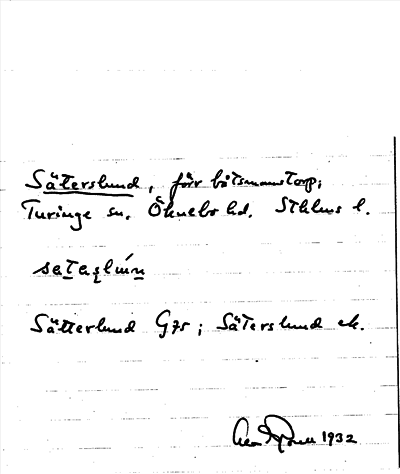 Säterslund, förr båtsmanstorp;
Turinge sn. Öknebo hd. Sthlms l.
Sätterlund G75; Säterslund ek.
1932